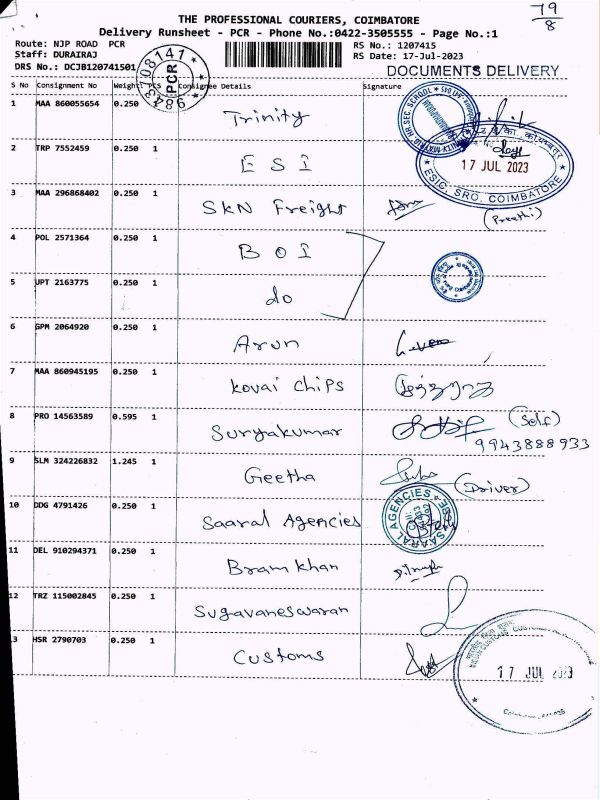 79
8
THE PROFESSIONAL COURIERS, COIMBATORE
Delivery Runsheet - PCR - Phone No.:0422-3505555 - Page No.:1
Route: NJP ROAD PCR
RS No.: 1207415
Staff: DURAIRAJ
RS Date: 17-Jul-2023
DRS No.: DCJB120741501
DOCUMENTS DELIVERY
PCR
S No Consignment No Weight Consignee Details Signature
1 MAA 860055654 0.250 Trinity
2 TRP 7552459 0.250 1 E S I
17 JUL 2023
ESIC, SRO, COIMBATORE
3 MAA 296868402 0.250 1 SKN Freight
(Preethi)
4 POL 2571364 0.250 1 B O I
5 UPT 2163775 0.250 1 do
6 GPM 2064920 0.250 1 Arun
7 MAA 860945195 0.250 1 Kovai chips
8 PRO 14563589 0.595 1 Suryakumar (Self)
9943888933
9 SLM 324226832 1.245 1 Geetha (Driver)
10 DDG 4791426 0.250 1 Saaral Agencies
SAARAL AGENCIES
11 DEL 910294371 0.250 1 Bramkhan
12 TRZ 115002845 0.250 1 Sugavaneswaran
3 HSR 2790703 0.250 1 Customs
17 JUL 2023